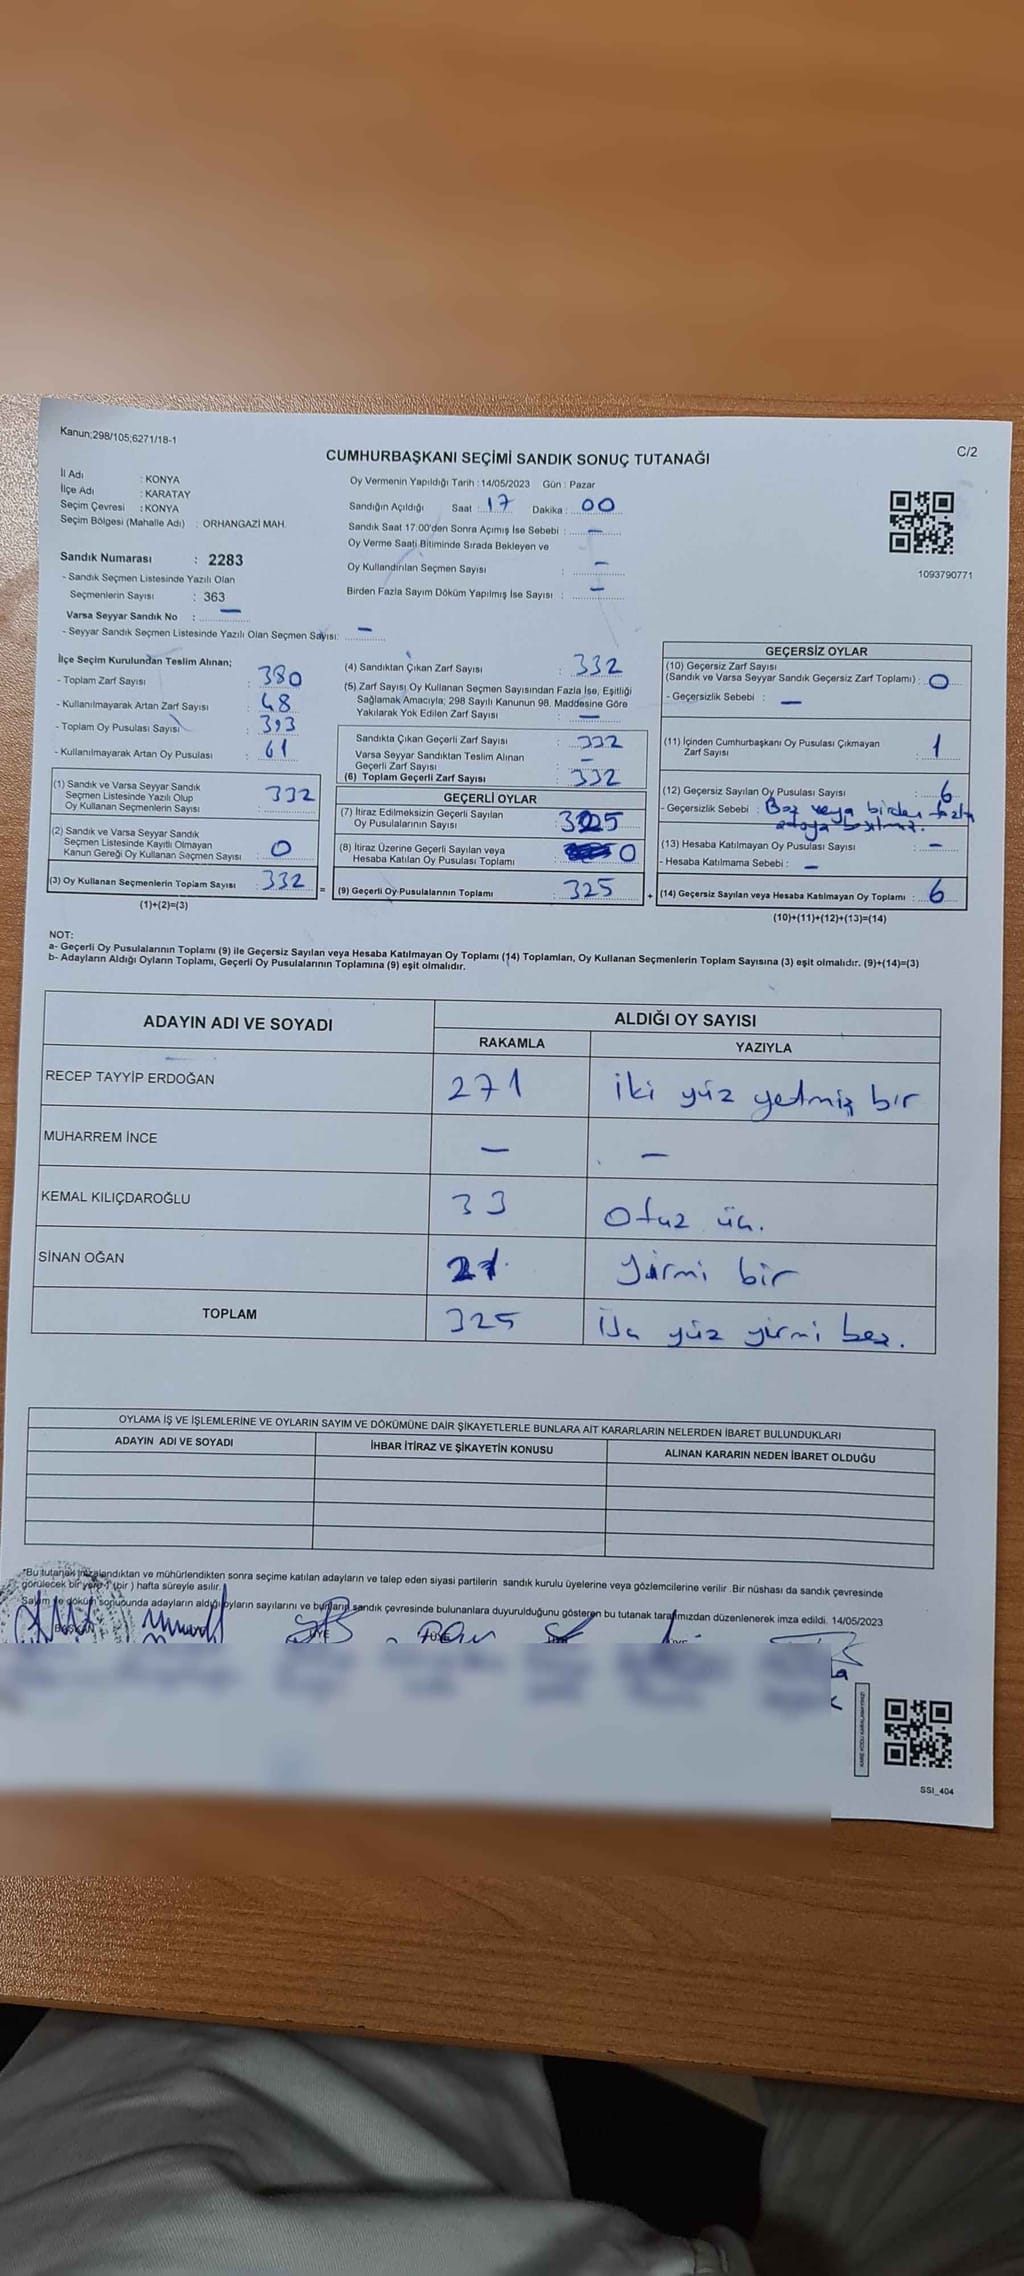 Kanun;298/105;6271/18-1
C/2
CUMHURBAŞKANI SEÇİMİ SANDIK SONUÇ TUTANAĞI
İl Adı : KONYA
İlçe Adı : KARATAY
Seçim Çevresi : KONYA
Seçim Bölgesi (Mahalle Adı) : ORHANGAZİ MAH.
Sandık Numarası : 2283
- Sandık Seçmen Listesinde Yazılı Olan
Seçmenlerin Sayısı : 363
Varsa Seyyar Sandık No : —
- Seyyar Sandık Seçmen Listesinde Yazılı Olan Seçmen Sayısı: —
Oy Vermenin Yapıldığı Tarih : 14/05/2023 Gün : Pazar
Sandığın Açıldığı Saat : 17 Dakika : 00
Sandık Saat 17:00'den Sonra Açımış İse Sebebi : —
Oy Verme Saati Bitiminde Sırada Bekleyen ve
Oy Kullandırılan Seçmen Sayısı : —
Birden Fazla Sayım Döküm Yapılmış İse Sayısı : —
1093790771
İlçe Seçim Kurulundan Teslim Alınan;
- Toplam Zarf Sayısı : 380
- Kullanılmayarak Artan Zarf Sayısı : 48
- Toplam Oy Pusulası Sayısı : 393
- Kullanılmayarak Artan Oy Pusulası : 61
(1) Sandık ve Varsa Seyyar Sandık
Seçmen Listesinde Yazılı Olup
Oy Kullanan Seçmenlerin Sayısı : 332
(2) Sandık ve Varsa Seyyar Sandık
Seçmen Listesinde Kayıtlı Olmayan
Kanun Gereği Oy Kullanan Seçmen Sayısı : 0
(3) Oy Kullanan Seçmenlerin Toplam Sayısı : 332 =
(1)+(2)=(3)
(4) Sandıktan Çıkan Zarf Sayısı : 332
(5) Zarf Sayısı Oy Kullanan Seçmen Sayısından Fazla İse, Eşitliği
Sağlamak Amacıyla; 298 Sayılı Kanunun 98. Maddesine Göre
Yakılarak Yok Edilen Zarf Sayısı : —
Sandıkta Çıkan Geçerli Zarf Sayısı : 332
Varsa Seyyar Sandıktan Teslim Alınan
Geçerli Zarf Sayısı : —
(6) Toplam Geçerli Zarf Sayısı : 332
GEÇERLİ OYLAR
(7) İtiraz Edilmeksizin Geçerli Sayılan
Oy Pusulalarının Sayısı : 325
(8) İtiraz Üzerine Geçerli Sayılan veya
Hesaba Katılan Oy Pusulası Toplamı : 0
(9) Geçerli Oy Pusulalarının Toplamı : 325 +
GEÇERSİZ OYLAR
(10) Geçersiz Zarf Sayısı
(Sandık ve Varsa Seyyar Sandık Geçersiz Zarf Toplamı) : 0
- Geçersizlik Sebebi : —
(11) İçinden Cumhurbaşkanı Oy Pusulası Çıkmayan
Zarf Sayısı : 1
(12) Geçersiz Sayılan Oy Pusulası Sayısı : 6
- Geçersizlik Sebebi : Boş veya birden fazla
(13) Hesaba Katılmayan Oy Pusulası Sayısı : —
- Hesaba Katılmama Sebebi : —
(14) Geçersiz Sayılan veya Hesaba Katılmayan Oy Toplamı : 6
(10)+(11)+(12)+(13)=(14)
NOT:
a- Geçerli Oy Pusulalarının Toplamı (9) ile Geçersiz Sayılan veya Hesaba Katılmayan Oy Toplamı (14) Toplamları, Oy Kullanan Seçmenlerin Toplam Sayısına (3) eşit olmalıdır. (9)+(14)=(3)
b- Adayların Aldığı Oyların Toplamı, Geçerli Oy Pusulalarının Toplamına (9) eşit olmalıdır.
ADAYIN ADI VE SOYADI ALDIĞI OY SAYISI
RAKAMLA YAZIYLA
RECEP TAYYİP ERDOĞAN 271 iki yüz yetmiş bir
MUHARREM İNCE — —
KEMAL KILIÇDAROĞLU 33 Otuz üç.
SİNAN OĞAN 21 yirmi bir
TOPLAM 325 yüz yirmi beş.
OYLAMA İŞ VE İŞLEMLERİNE VE OYLARIN SAYIM VE DÖKÜMÜNE DAİR ŞİKAYETLERLE BUNLARA AİT KARARLARIN NELERDEN İBARET BULUNDUKLARI
ADAYIN ADI VE SOYADI İHBAR İTİRAZ VE ŞİKAYETİN KONUSU ALINAN KARARIN NEDEN İBARET OLDUĞU
*Bu tutanak imzalandıktan ve mühürlendikten sonra seçime katılan adayların ve talep eden siyasi partilerin sandık kurulu üyelerine veya gözlemcilerine verilir .Bir nüshası da sandık çevresinde
görülecek bir yere 1 (bir ) hafta süreyle asılır.
Sayım ve döküm sonucunda adayların aldığı oyların sayılarını ve bunların sandık çevresinde bulunanlara duyurulduğunu gösteren bu tutanak tarafımızdan düzenlenerek imza edildi. 14/05/2023
BAŞKAN ÜYE ÜYE
SSI_404